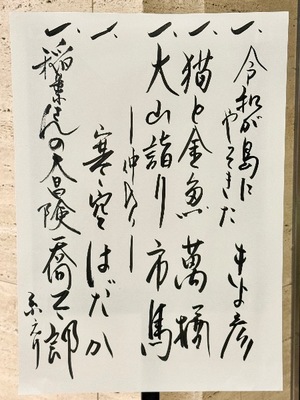 一、令和が島に
やってきた きよ彦
一、猫と金魚 萬橘
一、大山詣り 市馬
―仲入り―
一、寒空 はだか
一、稲葉さんの大冒険 喬太郎